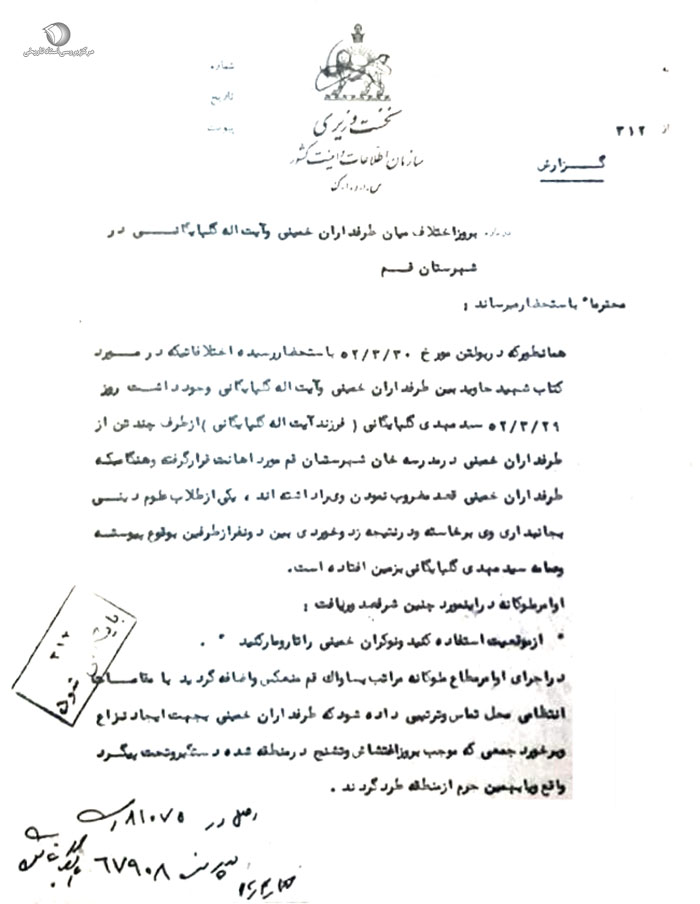 مرکز بررسی اسناد تاریخی
شماره
تاریخ
پیوست
نخست وزیری
سازمان اطلاعات و امنیت کشور
س.ا.و.ا.ک
به
از ۳۱۲
گزارش
درباره بروز اختلاف میان طرفداران خمینی و آیت اله گلپایگانی در
شهرستان قم
محترما" باستحضار میرساند :
همانطورکه در بولتن مورخ ۵۲/۳/۳۰ باستحضار رسیده اختلافاتیکه در مورد
کتاب شهید جاوید بین طرفداران خمینی و آیت اله گلپایگانی وجود داشت روز
۵۲/۳/۲۹ سید مهدی گلپایگانی ( فرزند آیت اله گلپایگانی ) از طرف چند تن از
طرفداران خمینی در مدرسه خان شهرستان قم مورد اهانت قرار گرفته و هنگامیکه
طرفداران خمینی قصد مضروب نمودن وی را داشته اند ، یکی از طلاب علوم دینی
بجانبداری وی برخاسته و در نتیجه زد و خوردی بین دو نفر از طرفین بوقوع پیوسته
و عمامه سید مهدی گلپایگانی بزمین افتاده است.
اوامر ملوکانه در اینمورد چنین شرفصدور یافت :
" از موقعیت استفاده کنید و نوکران خمینی را تارومار کنید " .
در اجرای اوامر مطاع ملوکانه مراتب بساواک قم منعکس و اضافه گردید با مقامات
انتظامی محل تماس و ترتیبی داده شود که طرفداران خمینی بجهت ایجاد نزاع
و برخورد جمعی که موجب بروز اغتشاش و تشنج در منطقه شده دستگیر و تحت پیگرد
واقع و یا بهمین جرم از منطقه طرد گردند .
بایگانی
۳۱۲
اصل در ۸۱۰۷۵
۶۷۹۰۸